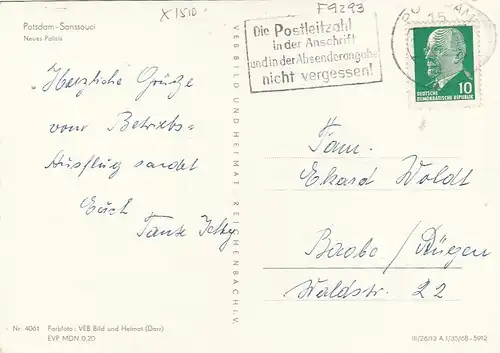 Potsdam-Sanssouci
Neues Palais
X 1510
F9293
Die Postleitzahl
in der Anschrift
und in der Absenderangabe
nicht vergessen!
15
10
DEUTSCHE
DEMOKRATISCHE REPUBLIK
"Herzliche Grüße
vom Betriebs-
Ausflug sendet
Euch
Tante
VEB BILD UND HEIMAT REICHENBACH I. V.
Fam.
Ekard Woldt
Baabe / Rügen
Waldstr. 22
Nr. 4061 Farbfoto: VEB Bild und Heimat (Darr)
EVP MDN 0,20
III/26/13 A 1/35/68-5912